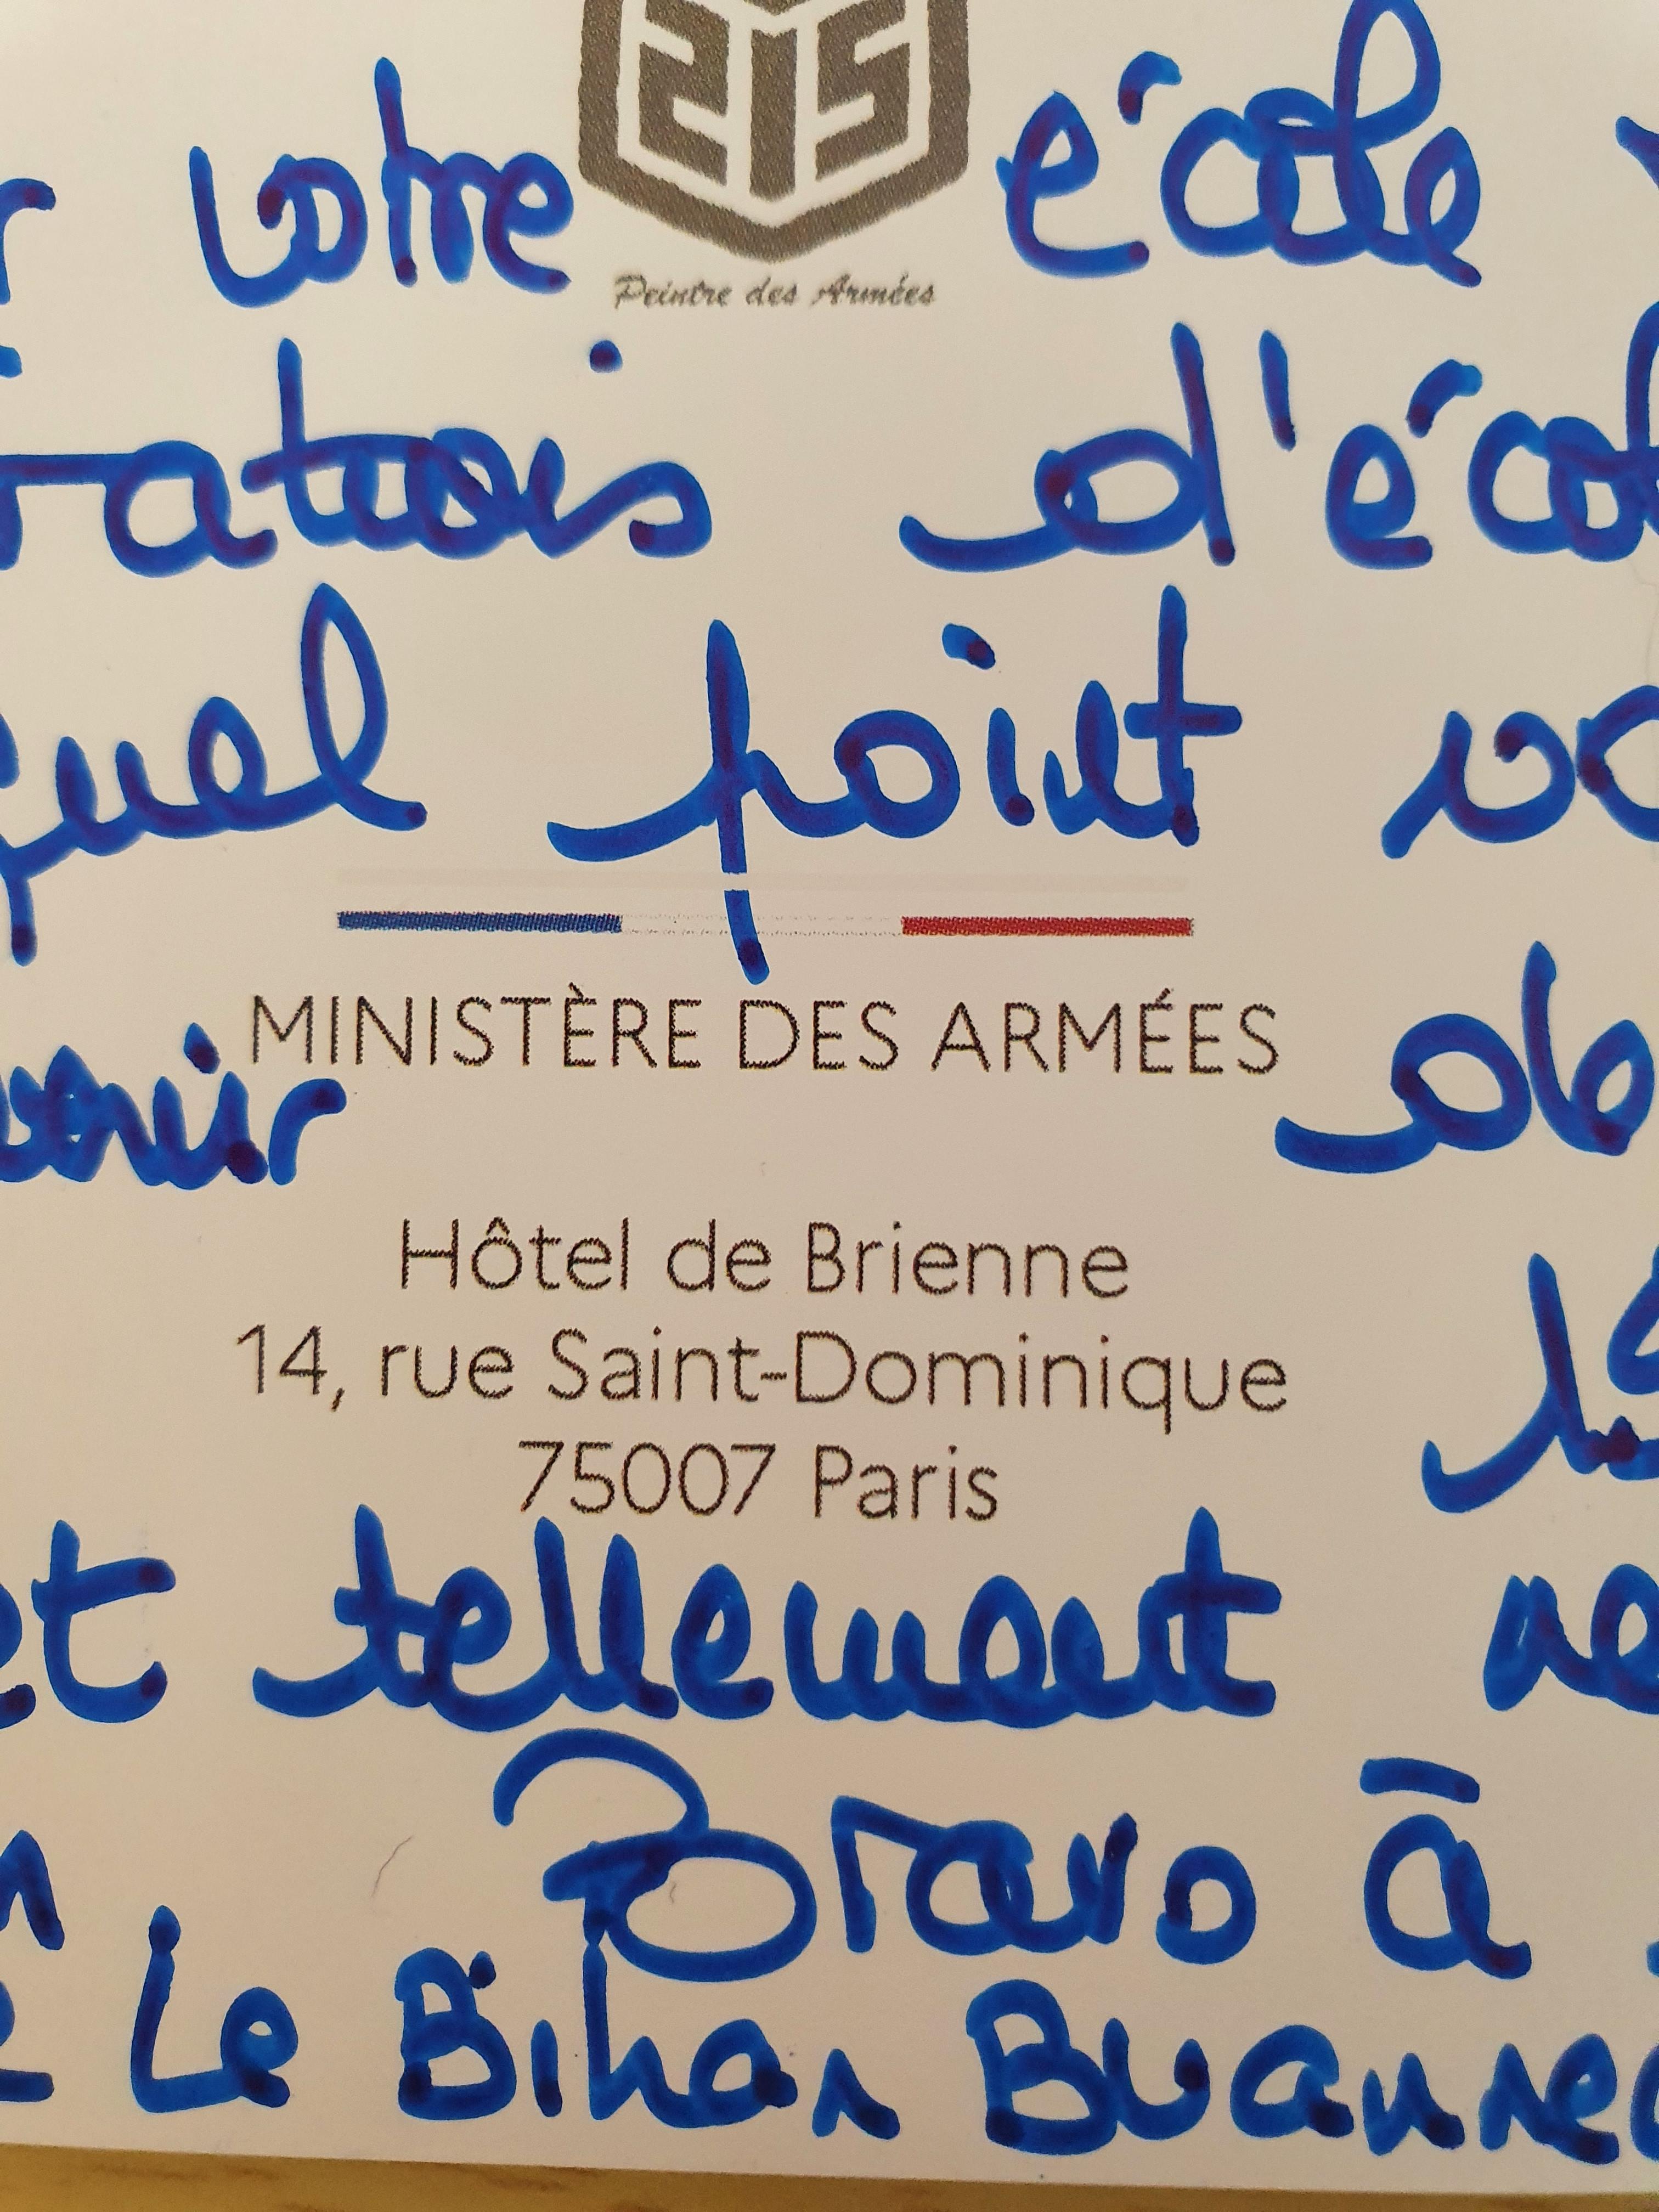 ZIS
votre école
Peintre des Armées
d'éco
quel point vo
MINISTÈRE DES ARMÉES
de
Hôtel de Brienne
14, rue Saint-Dominique
75007 Paris
et tellement
Bravo à
Le Bihan Buanned